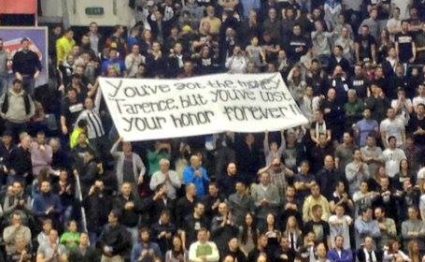 You've got the money
Tarence, but you've lost
your honor forever!